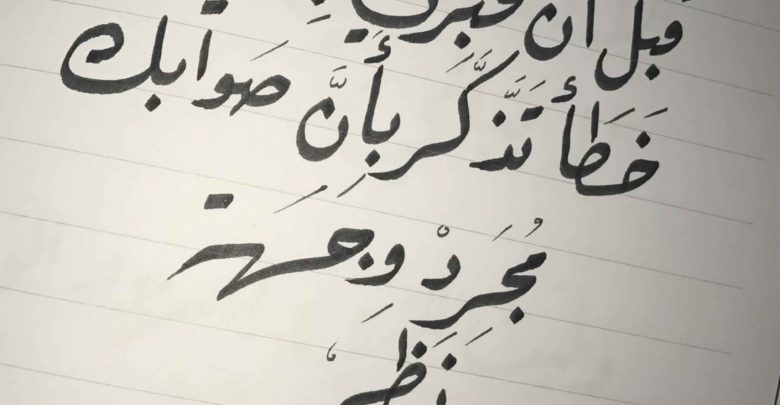 قبل أن تخبرني
خَطَأ تَذَّكَّر بأَنَّ صَوابك
مُجَرِدْ وِجهَة
نَظَر